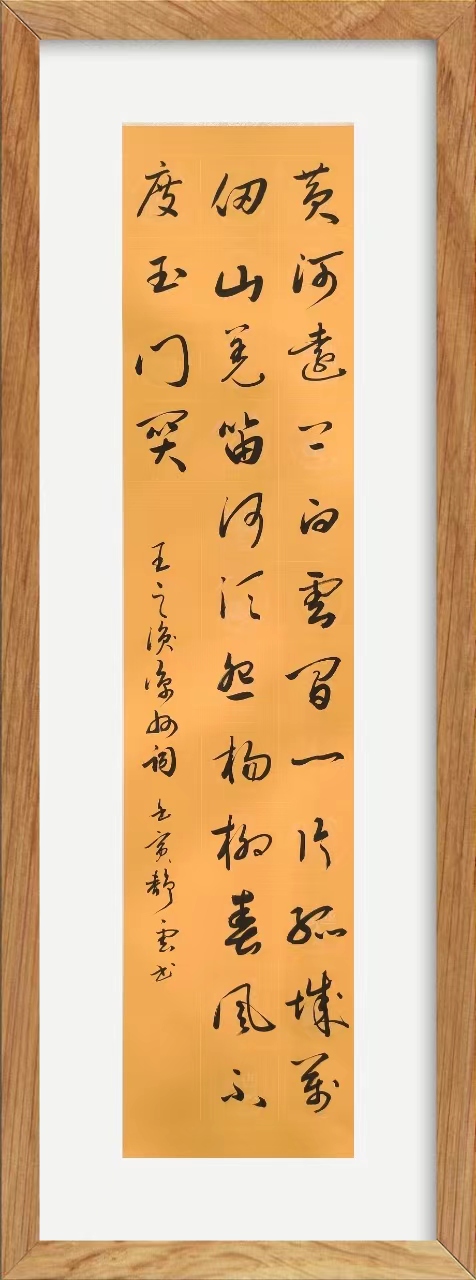 黄河远上白云间一片孤城万
仞山羌笛何须怨杨柳春风不
度玉门关
王之涣凉州词 壬寅静云书